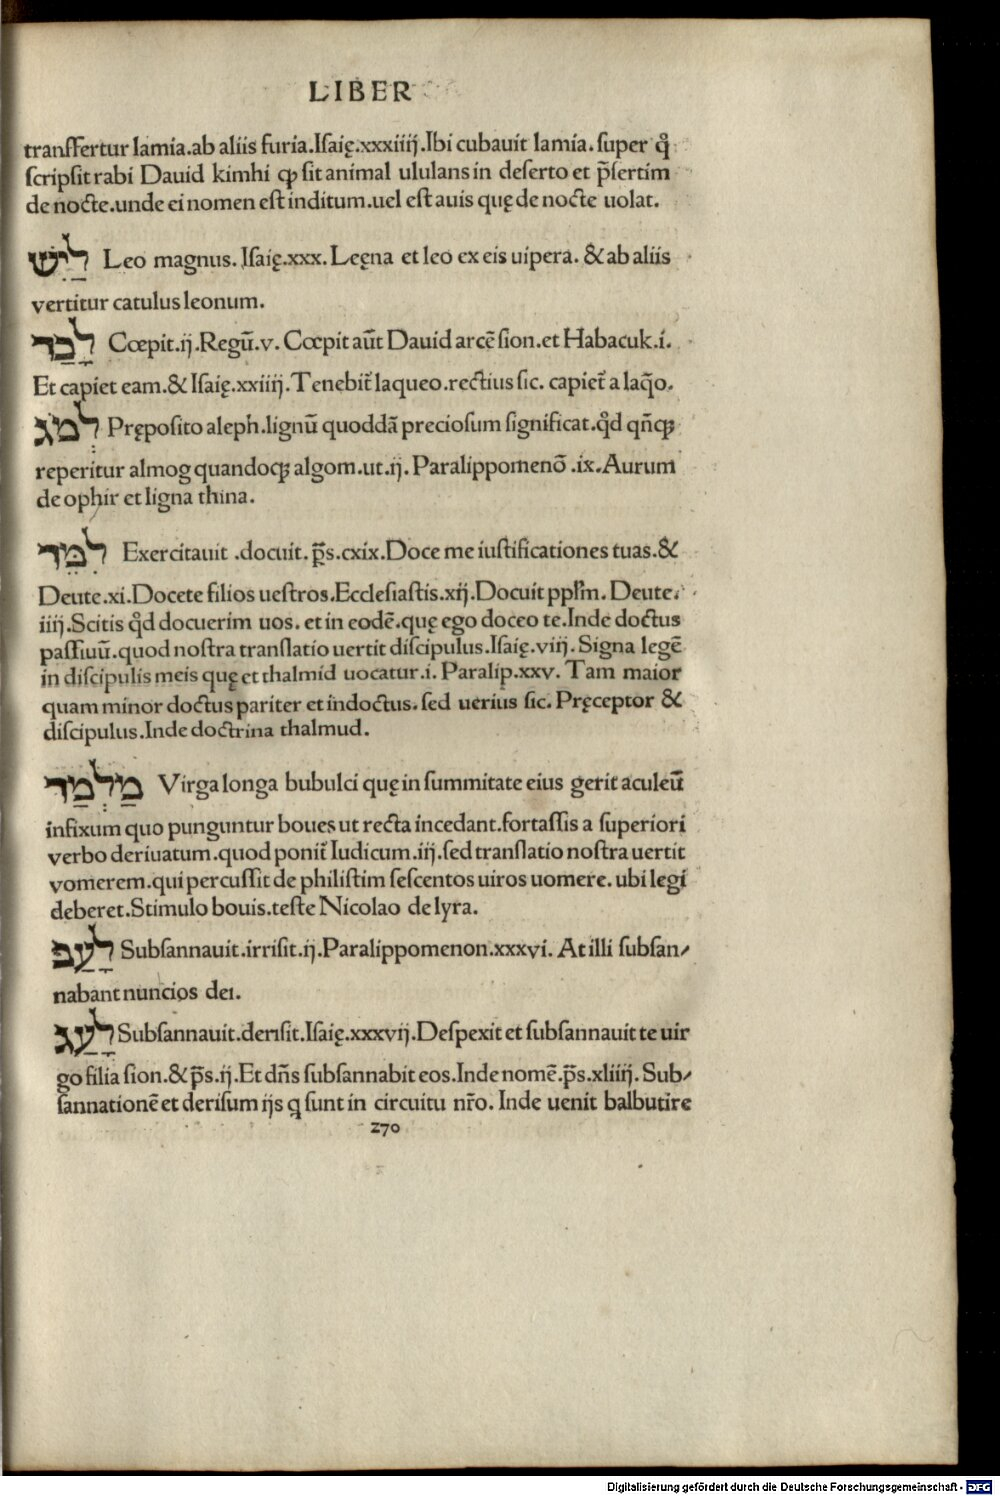 LIBER
tranſſertur lamia.ab aliis furia.Iſaię.xxxiiij.Ibi cubauit lamia.ſuper ꝙ̊
ſcripſit rabi Dauid kimhi ꝙ ſit animal ululans in deſerto et p̃ſertim
de nocte.unde ei nomen eſt inditum.uel eſt auis quę de nocte uolat.
לַיִשׁ Leo magnus. Iſaię.xxx. Leęna et leo ex eis uipera. & ab aliis
vertitur catulus leonum.
לָכַד Cœpit.ij.Regũ.v. Cœpit aũt Dauid arcẽ ſion.et Habacuk.i.
Et capiet eam.& Iſaię.xxiiij.Tenebit̃ laqueo.rectius ſic. capiet̃ a laq̃o.
לְמֹג Pręposito aleph.lignũ quoddã precioſum ſignificat.qd̊ qñcꝫ
reperitur almog quandocꝫ algom.ut.ij. Paralippomenõ.ix.Aurum
de ophir et ligna thina.
לִמֵּד Exercitauit .docuit. p̃s.cxix.Doce me iuſtificationes tuas.&
Deute.xi.Docete filios ueſtros.Eccleſiaſtis.xij.Docuit pplm̃. Deute.
iiij.Scitis qd̊ docuerim uos. et in eodẽ.quę ego doceo te.Inde doctus
paſſiuũ.quod noſtra tranſlatio uertit diſcipulus.Iſaię.viij. Signa legẽ
in diſcipulis meis quę et thalmid uocatur.i. Paralip.xxv. Tam maior
quam minor doctus pariter et indoctus. ſed uerius ſic. Pręceptor &
diſcipulus.Inde doctrina thalmud.
מַלְמַד Virga longa bubulci quę in ſummitate eius gerit aculeũ
infixum quo punguntur boues ut recta incedant.fortaſſis a ſuperiori
verbo deriuatum.quod ponit̃ Iudicum.iij.ſed tranſlatio noſtra uertit
vomerem.qui percuſſit de philiſtim ſeſcentos uiros uomere. ubi legi
deberet.Stimulo bouis.teſte Nicolao de lyra.
לָעַב Subſannauit.irriſit.ij.Paralippomenon.xxxvi. At illi ſubſan⸗
nabant nuncios dei.
לָעַג Subſannauit.deriſit.Iſaię.xxxvij.Deſpexit et ſubſannauit te uir
go filia ſion.& p̃s.ij.Et dñs ſubſannabit eos.Inde nomẽ.p̃s.xliiij. Sub⸗
ſannationẽ et deriſum ijs q ſunt in circuitu nr̃o. Inde uenit balbutire
270
Digitalisierung gefördert durch die Deutsche Forschungsgemeinschaft - DFG